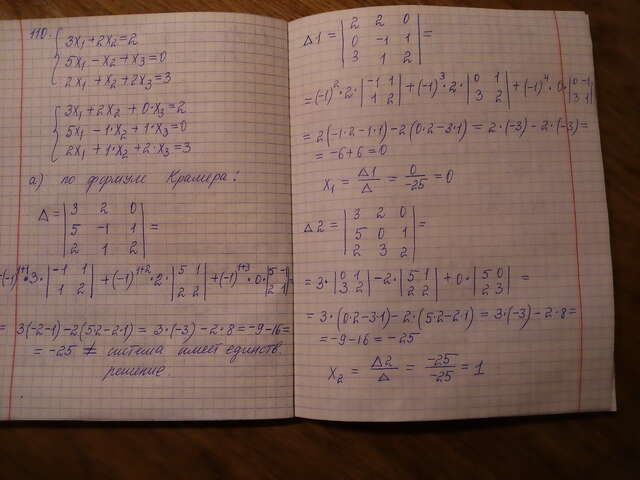 110. { 3x₁+2x₂=2
5x₁-x₂+x₃=0
2x₁+x₂+2x₃=3
{ 3x₁+2x₂+0·x₃=2
5x₁-1·x₂+1·x₃=0
2x₁+1·x₂+2·x₃=3
а) по формуле Крамера:
Δ = | 3 2 0 |
| 5 -1 1 | =
| 2 1 2 |
=(-1)¹⁺¹·3·| -1 1 | +(-1)¹⁺²·2·| 5 1 | +(-1)¹⁺³·0·| 5 -1 | =
| 1 2 | | 2 2 | | 2 1 |
= 3(-2-1)-2(5·2-2·1) = 3·(-3)-2·8=-9-16=
= -25 ≠ система имеет единств.
решение
Δ1 = | 2 2 0 |
| 0 -1 1 | =
| 3 1 2 |
=(-1)²·2·| -1 1 | +(-1)³·2·| 0 1 | +(-1)⁴·0·| 0 -1 |
| 1 2 | | 3 2 | | 3 1 |
= 2(-1·2-1·1)-2(0·2-3·1)= 2·(-3)-2·(-3)=
= -6+6=0
x₁ = Δ1/Δ = 0/-25 = 0
Δ2 = | 3 2 0 |
| 5 0 1 | =
| 2 3 2 |
= 3·| 0 1 | -2·| 5 1 | + 0·| 5 0 | =
| 3 2 | | 2 2 | | 2 3 |
= 3·(0·2-3·1)-2·(5·2-2·1)= 3·(-3)-2·8=
= -9-16 = -25
x₂ = Δ2/Δ = -25/-25 = 1